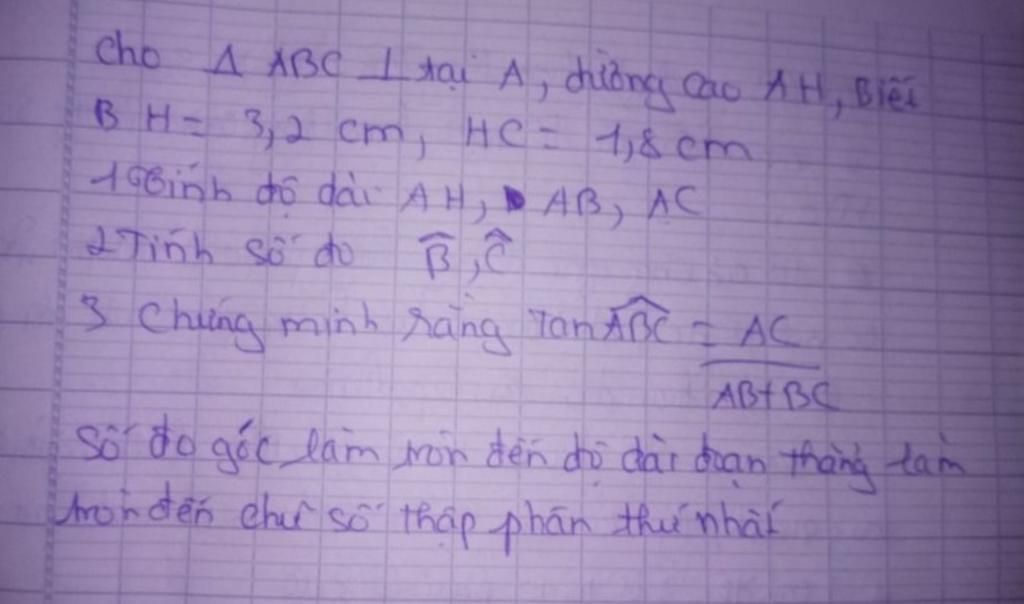 Cho Δ ABC ⊥ tại A, đường cao AH, Biết
BH = 3,2 cm, HC = 1,8 cm
1 Tính độ dài AH, AB, AC
2 Tính số đo B̂, Ĉ
3 Chứng minh rằng Tan ABC = AC
AB+BC
Số đo góc làm tròn đến độ dài đoạn thẳng làm
tròn đến chữ số thập phân thứ nhất